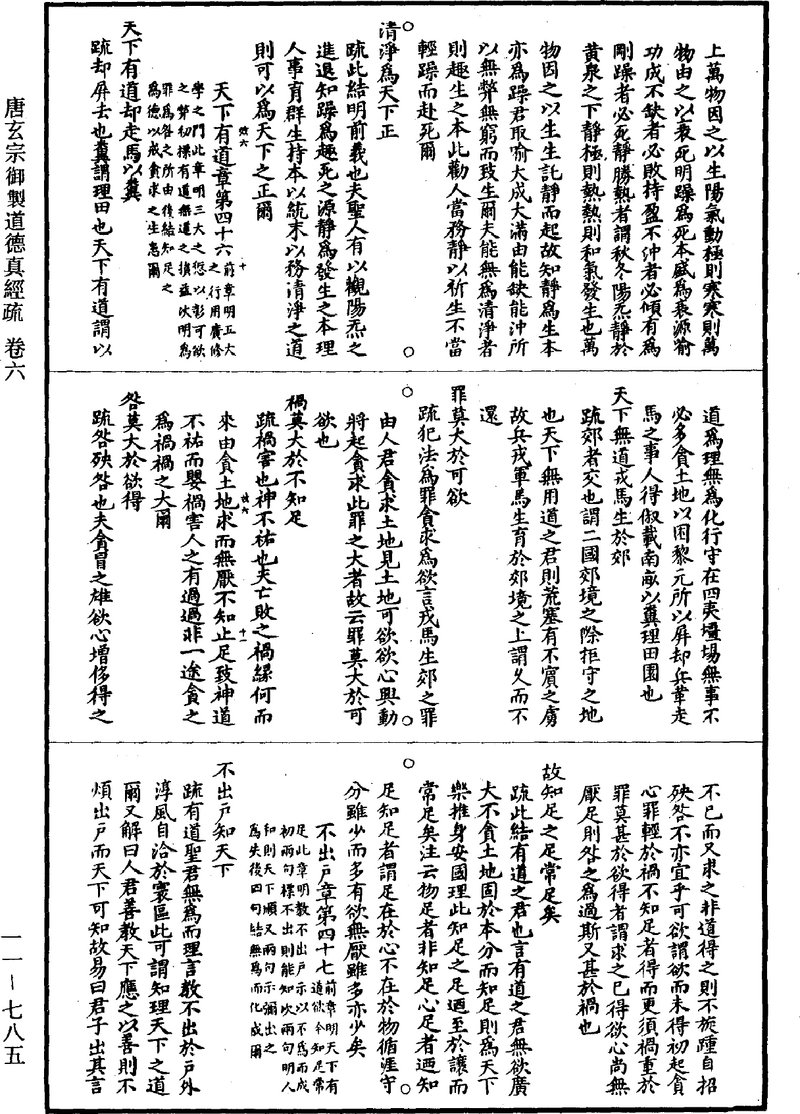 唐玄宗御製道德真經疏 卷六
一一－七八五
上萬物因之以生陽氣動極則寒寒則萬
物由之以衰死明躁為死本盛為衰源翁
功成不缺者必敗持盈不沖者必傾有為
剛躁者必死靜勝熱者謂秋冬陽炁靜於
黃泉之下靜極則熱熱則和氣發生也萬
物因之以生生託靜而起故知靜為生本
亦為躁君取喻大成大滿由能缺能沖所
以無弊無窮而致生爾夫能無為清淨者
則趣生之本此勸人當務靜以祈生不當
輕躁而赴死爾
清淨為天下正
疏此結明前義也夫聖人有以觀陽炁之
進退知躁為趣死之源靜為發生之本理
人事育群生持本以統末以務清淨之道
則可以為天下之正爾
天下有道章第四十六
前章明五大
之行用廣修
學之門此章明三大之愆以彰可欲
之弊初標有道無道之損益次明為
罪為咎之所由後結知足之
為德以戒貪求之生患爾
天下有道却走馬以糞
疏却屏去也糞謂理田也天下有道謂以
道為理無為化行守在四夷壃場無事不
必多貪土地以困黎元所以屏却兵革走
馬之事人得俶載南畝以糞理田園也
天下無道戎馬生於郊
疏郊者交也謂二國郊境之際拒守之地
也天下無用道之君則荒塞有不賓之虜
故兵戎軍馬生育於郊境之上謂久而不
還
罪莫大於可欲
疏犯法為罪貪求為欲言戎馬生郊之罪
由人君貪求土地見土地可欲欲心興動
將起貪求此罪之大者故云罪莫大於可
欲也
禍莫大於不知足
疏禍害也神不祐也夫亡敗之禍緣何而
來由貪土地求而無厭不知止足致神道
不祐而嬰禍害人之有過過非一途貪之
為禍禍之大爾
咎莫大於欲得
疏咎殃咎也夫貪冒之雄欲心增侈得之
不已而又求之非道得之則不旋踵自招
殃咎不亦宜乎可欲謂欲而未得初起貪
心罪輕於禍不知足者得而更須禍重於
罪莫甚於欲得者謂求之已得欲心尚無
厭足則咎之為過斯又甚於禍也
故知足之足常足矣
疏此結有道之君也言有道之君無欲廣
大不貪土地固於本分而知足則為天下
樂推身安國理此知足之足迺至於讓而
常足矣注云物足者非知足心足者迺知
足知足者謂足在於心不在於物循涯守
分雖少而多有欲無厭雖多亦少矣
不出戶章第四十七
前章明天下有
道俶令知足常
足此章明教不出戶示以不為而成
初兩句標不出則能知次兩句明人
和則天下順又兩句示彌出之
為失後四句結無為而化成爾
不出戶知天下
疏有道聖君無為而理言教不出於戶外
淳風自洽於寰區此可謂知理天下之道
爾又解曰人君善教天下應之以善則不
煩出戶而天下可知故易曰君子出其言